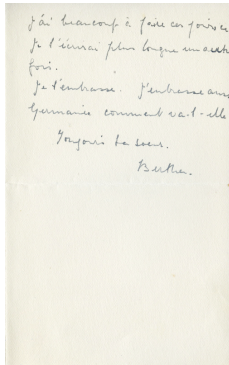 J'ai beaucoup à faire ces jours ci
Je t'écrirai plus longue une autre
fois.
Je t'embrasse. J'embrasse aussi
Germaine comment va-t-elle
Toujours ta soeur.
Berthe.